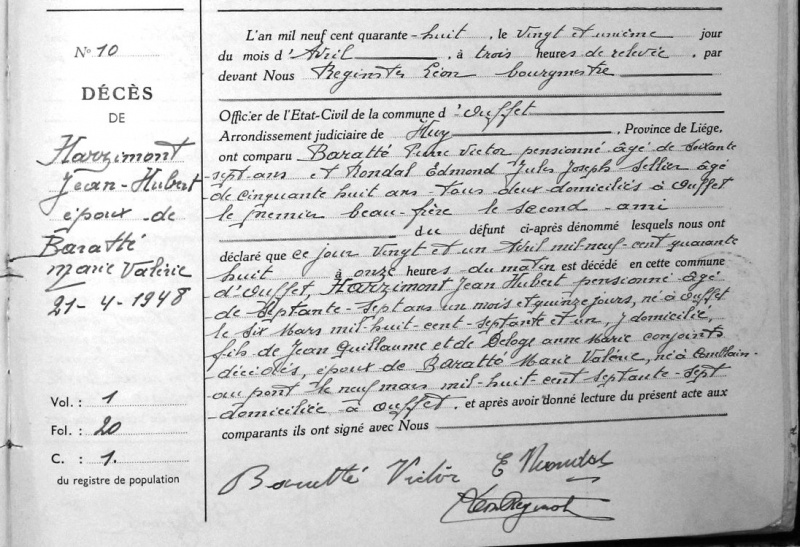 N° 10
DÉCÈS
DE
Harzimont
Jean-Hubert
époux de
Baratté
Marie Valérie
21-4-1948
Vol. : 1
Fol. : 20
C. : 1.
du registre de population
L'an mil neuf cent quarante-huit, le vingt et unième jour
du mois d'Avril, à trois heures de relevée, par
devant Nous Reginster Léon bourgmestre
Officier de l'Etat-Civil de la commune d'Ouffet
Arrondissement judiciaire de Huy, Province de Liége,
ont comparu Baratté Pierre Victor pensionné âgé de soixante
sept ans et Rondal Edmond Jules Joseph Sellier âgé
de cinquante huit ans - tous deux domiciliés à Ouffet
le premier beau-frère le second ami
du défunt ci-après dénommé lesquels nous ont
déclaré que ce jour vingt et un Avril mil neuf cent quarante
huit à onze heures du matin est décédé en cette commune
d'Ouffet, Harzimont Jean Hubert pensionné âgé
de septante-sept ans un mois et quinze jours, né à Ouffet
le six Mars mil-huit-cent-septante et un, y domicilié,
fils de Jean Guillaume et de Deloge anne Marie conjoints
décédés, époux de Baratté Marie Valérie, née à Comblain-
au pont le neuf mars mil-huit-cent septante-sept
domiciliée à Ouffet. et après avoir donné lecture du présent acte aux
comparants ils ont signé avec Nous
Baratté Victor E Rondal